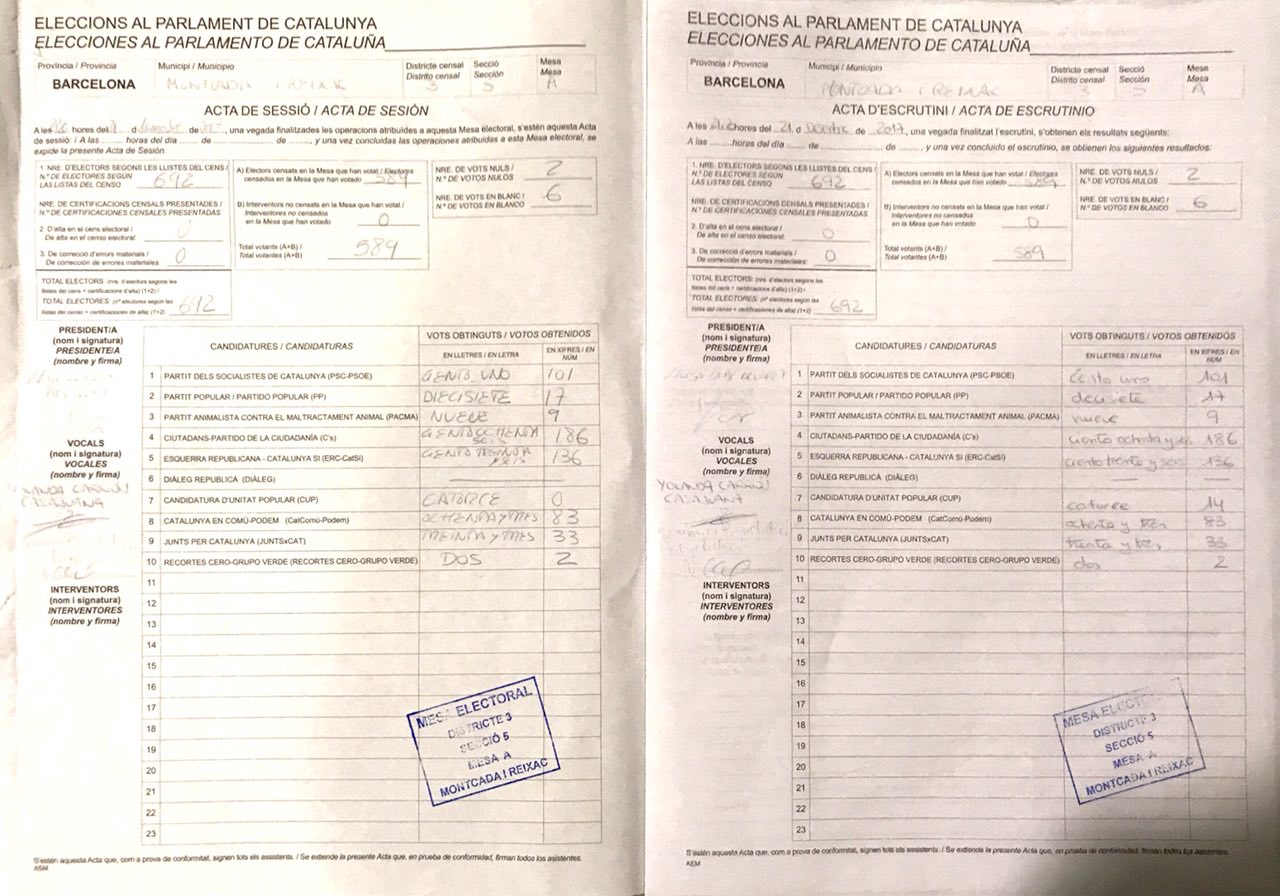 ELECCIONS AL PARLAMENT DE CATALUNYA
ELECCIONES AL PARLAMENTO DE CATALUÑA
Província / Provincia
BARCELONA
Municipi / Municipio
MONTCADA I REIXAC
Districte censal
Distrito censal
3
Secció
Sección
5
Mesa
Mesa
A
ACTA DE SESSIÓ / ACTA DE SESIÓN
A les hores del d de , una vegada finalitzades les operacions atribuïdes a aquesta Mesa electoral, s'estén aquesta Acta
de sessió: / A las horas del día de de , y una vez concluidas las operaciones atribuidas a esta Mesa electoral, se
expide la presente Acta de Sesión.
1. NRE. D'ELECTORS SEGONS LES LLISTES DEL CENS /
N.º DE ELECTORES SEGÚN
LAS LISTAS DEL CENSO 692
NRE. DE CERTIFICACIONS CENSALS PRESENTADES /
N.º DE CERTIFICACIONES CENSALES PRESENTADAS
2. D'alta en el cens electoral /
De alta en el censo electoral: 0
3. De correcció d'errors materials /
De corrección de errores materiales: 0
TOTAL ELECTORS: (nre. d'electors segons les
llistes del cens + certificacions d'alta) (1+2) /
TOTAL ELECTORES: (nº electores según las
listas del censo + certificaciones de alta) (1+2) 692
A) Electors censats en la Mesa que han votat / Electores
censados en la Mesa que han votado 589
B) Interventors no censats en la Mesa que han votat /
Interventores no censados
en la Mesa que han votado 0
Total votants (A+B) /
Total votantes (A+B) 589
NRE. DE VOTS NULS /
N.º DE VOTOS NULOS 2
NRE. DE VOTS EN BLANC /
N.º DE VOTOS EN BLANCO 6
PRESIDENT/A
(nom i signatura)
PRESIDENTE/A
(nombre y firma)
VOCALS
(nom i signatura)
VOCALES
(nombre y firma)
INTERVENTORS
(nom i signatura)
INTERVENTORES
(nombre y firma)
CANDIDATURES / CANDIDATURAS
VOTS OBTINGUTS / VOTOS OBTENIDOS
EN LLETRES / EN LETRA
EN XIFRES / EN NÚM
1 PARTIT DELS SOCIALISTES DE CATALUNYA (PSC-PSOE) CIENTO UNO 101
2 PARTIT POPULAR / PARTIDO POPULAR (PP) DIECISIETE 17
3 PARTIT ANIMALISTA CONTRA EL MALTRACTAMENT ANIMAL (PACMA) NUEVE 9
4 CIUTADANS-PARTIDO DE LA CIUDADANÍA (C's) CIENTO OCHENTA SEIS 186
5 ESQUERRA REPUBLICANA - CATALUNYA SÍ (ERC-CatSí) CIENTO TREINTA Y SEIS 136
6 DIÀLEG REPUBLICÀ (DIÀLEG)
7 CANDIDATURA D'UNITAT POPULAR (CUP) CATORCE 0
8 CATALUNYA EN COMÚ-PODEM (CatComú-Podem) OCHENTA Y TRES 83
9 JUNTS PER CATALUNYA (JUNTSxCAT) TREINTA Y TRES 33
10 RECORTES CERO-GRUPO VERDE (RECORTES CERO-GRUPO VERDE) DOS 2
11
12
13
14
15
16
17
18
19
20
21
22
23
MESA ELECTORAL
DISTRICTE 3
SECCIÓ 5
MESA A
MONTCADA I REIXAC
S'estén aquesta Acta que, com a prova de conformitat, signen tots els assistents. / Se extiende la presente Acta que, en prueba de conformidad, firman todos los asistentes.
ELECCIONS AL PARLAMENT DE CATALUNYA
ELECCIONES AL PARLAMENTO DE CATALUÑA
Província / Provincia
BARCELONA
Municipi / Municipio
MONTCADA I REIXAC
Districte censal
Distrito censal
3
Secció
Sección
5
Mesa
Mesa
A
ACTA D'ESCRUTINI / ACTA DE ESCRUTINIO
A les hores del 21 d de 2017, una vegada finalitzat l'escrutini, s'obtenen els resultats següents:
A las horas del día de de , y una vez concluido el escrutinio, se obtienen los siguientes resultados:
1. NRE. D'ELECTORS SEGONS LES LLISTES DEL CENS /
N.º DE ELECTORES SEGÚN
LAS LISTAS DEL CENSO 692
NRE. DE CERTIFICACIONS CENSALS PRESENTADES /
N.º DE CERTIFICACIONES CENSALES PRESENTADAS
2. D'alta en el cens electoral /
De alta en el censo electoral: 0
3. De correcció d'errors materials /
De corrección de errores materiales: 0
TOTAL ELECTORS: (nre. d'electors segons les
llistes del cens + certificacions d'alta) (1+2) /
TOTAL ELECTORES: (nº electores según las
listas del censo + certificaciones de alta) (1+2) 692
A) Electors censats en la Mesa que han votat / Electores
censados en la Mesa que han votado 589
B) Interventors no censats en la Mesa que han votat /
Interventores no censados
en la Mesa que han votado 0
Total votants (A+B) /
Total votantes (A+B) 589
NRE. DE VOTS NULS /
N.º DE VOTOS NULOS 2
NRE. DE VOTS EN BLANC /
N.º DE VOTOS EN BLANCO 6
PRESIDENT/A
(nom i signatura)
PRESIDENTE/A
(nombre y firma)
VOCALS
(nom i signatura)
VOCALES
(nombre y firma)
YOLANDA
INTERVENTORS
(nom i signatura)
INTERVENTORES
(nombre y firma)
CANDIDATURES / CANDIDATURAS
VOTS OBTINGUTS / VOTOS OBTENIDOS
EN LLETRES / EN LETRA
EN XIFRES / EN NÚM
1 PARTIT DELS SOCIALISTES DE CATALUNYA (PSC-PSOE) ciento uno 101
2 PARTIT POPULAR / PARTIDO POPULAR (PP) diecisiete 17
3 PARTIT ANIMALISTA CONTRA EL MALTRACTAMENT ANIMAL (PACMA) nueve 9
4 CIUTADANS-PARTIDO DE LA CIUDADANÍA (C's) ciento ochenta y seis 186
5 ESQUERRA REPUBLICANA - CATALUNYA SÍ (ERC-CatSí) ciento treinta y seis 136
6 DIÀLEG REPUBLICÀ (DIÀLEG)
7 CANDIDATURA D'UNITAT POPULAR (CUP) catorce 14
8 CATALUNYA EN COMÚ-PODEM (CatComú-Podem) ochenta y tres 83
9 JUNTS PER CATALUNYA (JUNTSxCAT) treinta y tres 33
10 RECORTES CERO-GRUPO VERDE (RECORTES CERO-GRUPO VERDE) dos 2
11
12
13
14
15
16
17
18
19
20
21
22
23
MESA ELECTORAL
DISTRICTE 3
SECCIÓ 5
MESA A
MONTCADA I REIXAC
S'estén aquesta Acta que, com a prova de conformitat, signen tots els assistents. / Se extiende la presente Acta que, en prueba de conformidad, firman todos los asistentes.
AEM